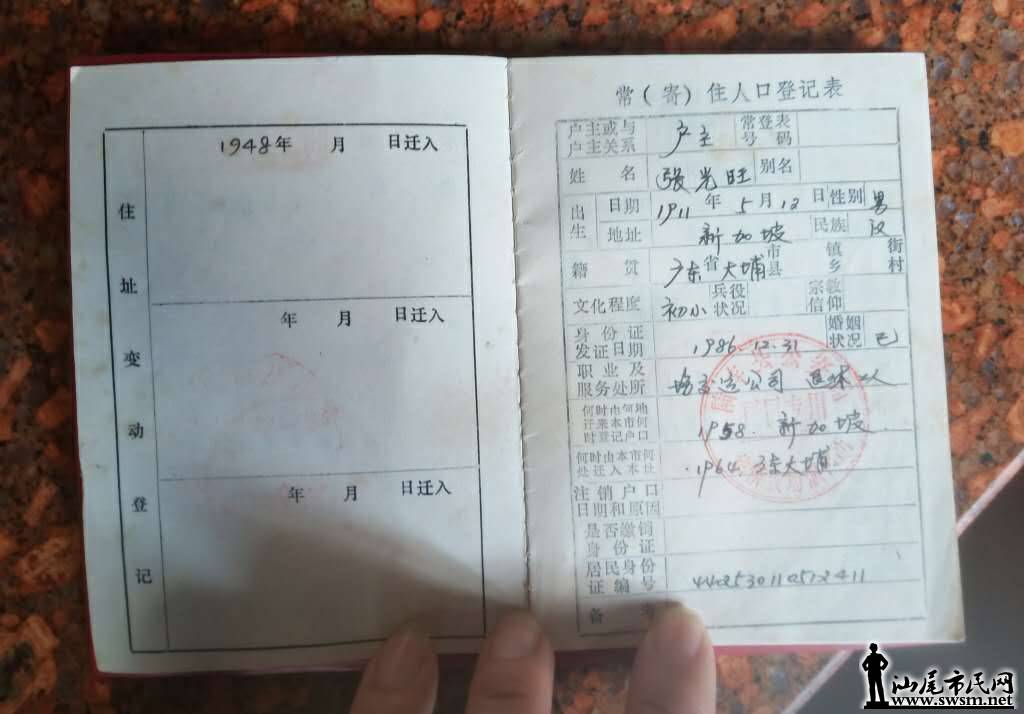 住址变动登记
1948年 月 日迁入
年 月 日迁入
年 月 日迁入
常(寄)住人口登记表
户主或与户主关系 户主 常登表号码
姓名 張光旺 别名
出生 日期 1911年5月12日 性别 男
地址 新加坡 民族 汉
籍贯 广东省大埔市县 镇乡 街村
文化程度 初小 兵役状况 宗教信仰
身份证发证日期 1986.12.31 婚姻状况 已
职业及服务处所 公司 退休
何时由何地迁来本市何时登记户口 1958. 新加坡
何时由本市何处迁入本址 1964. 广东大埔
注销户口日期和原因
是否缴销身份证
居民身份证编号 442530110512411
备
汕尾市民网
www.swsm.net